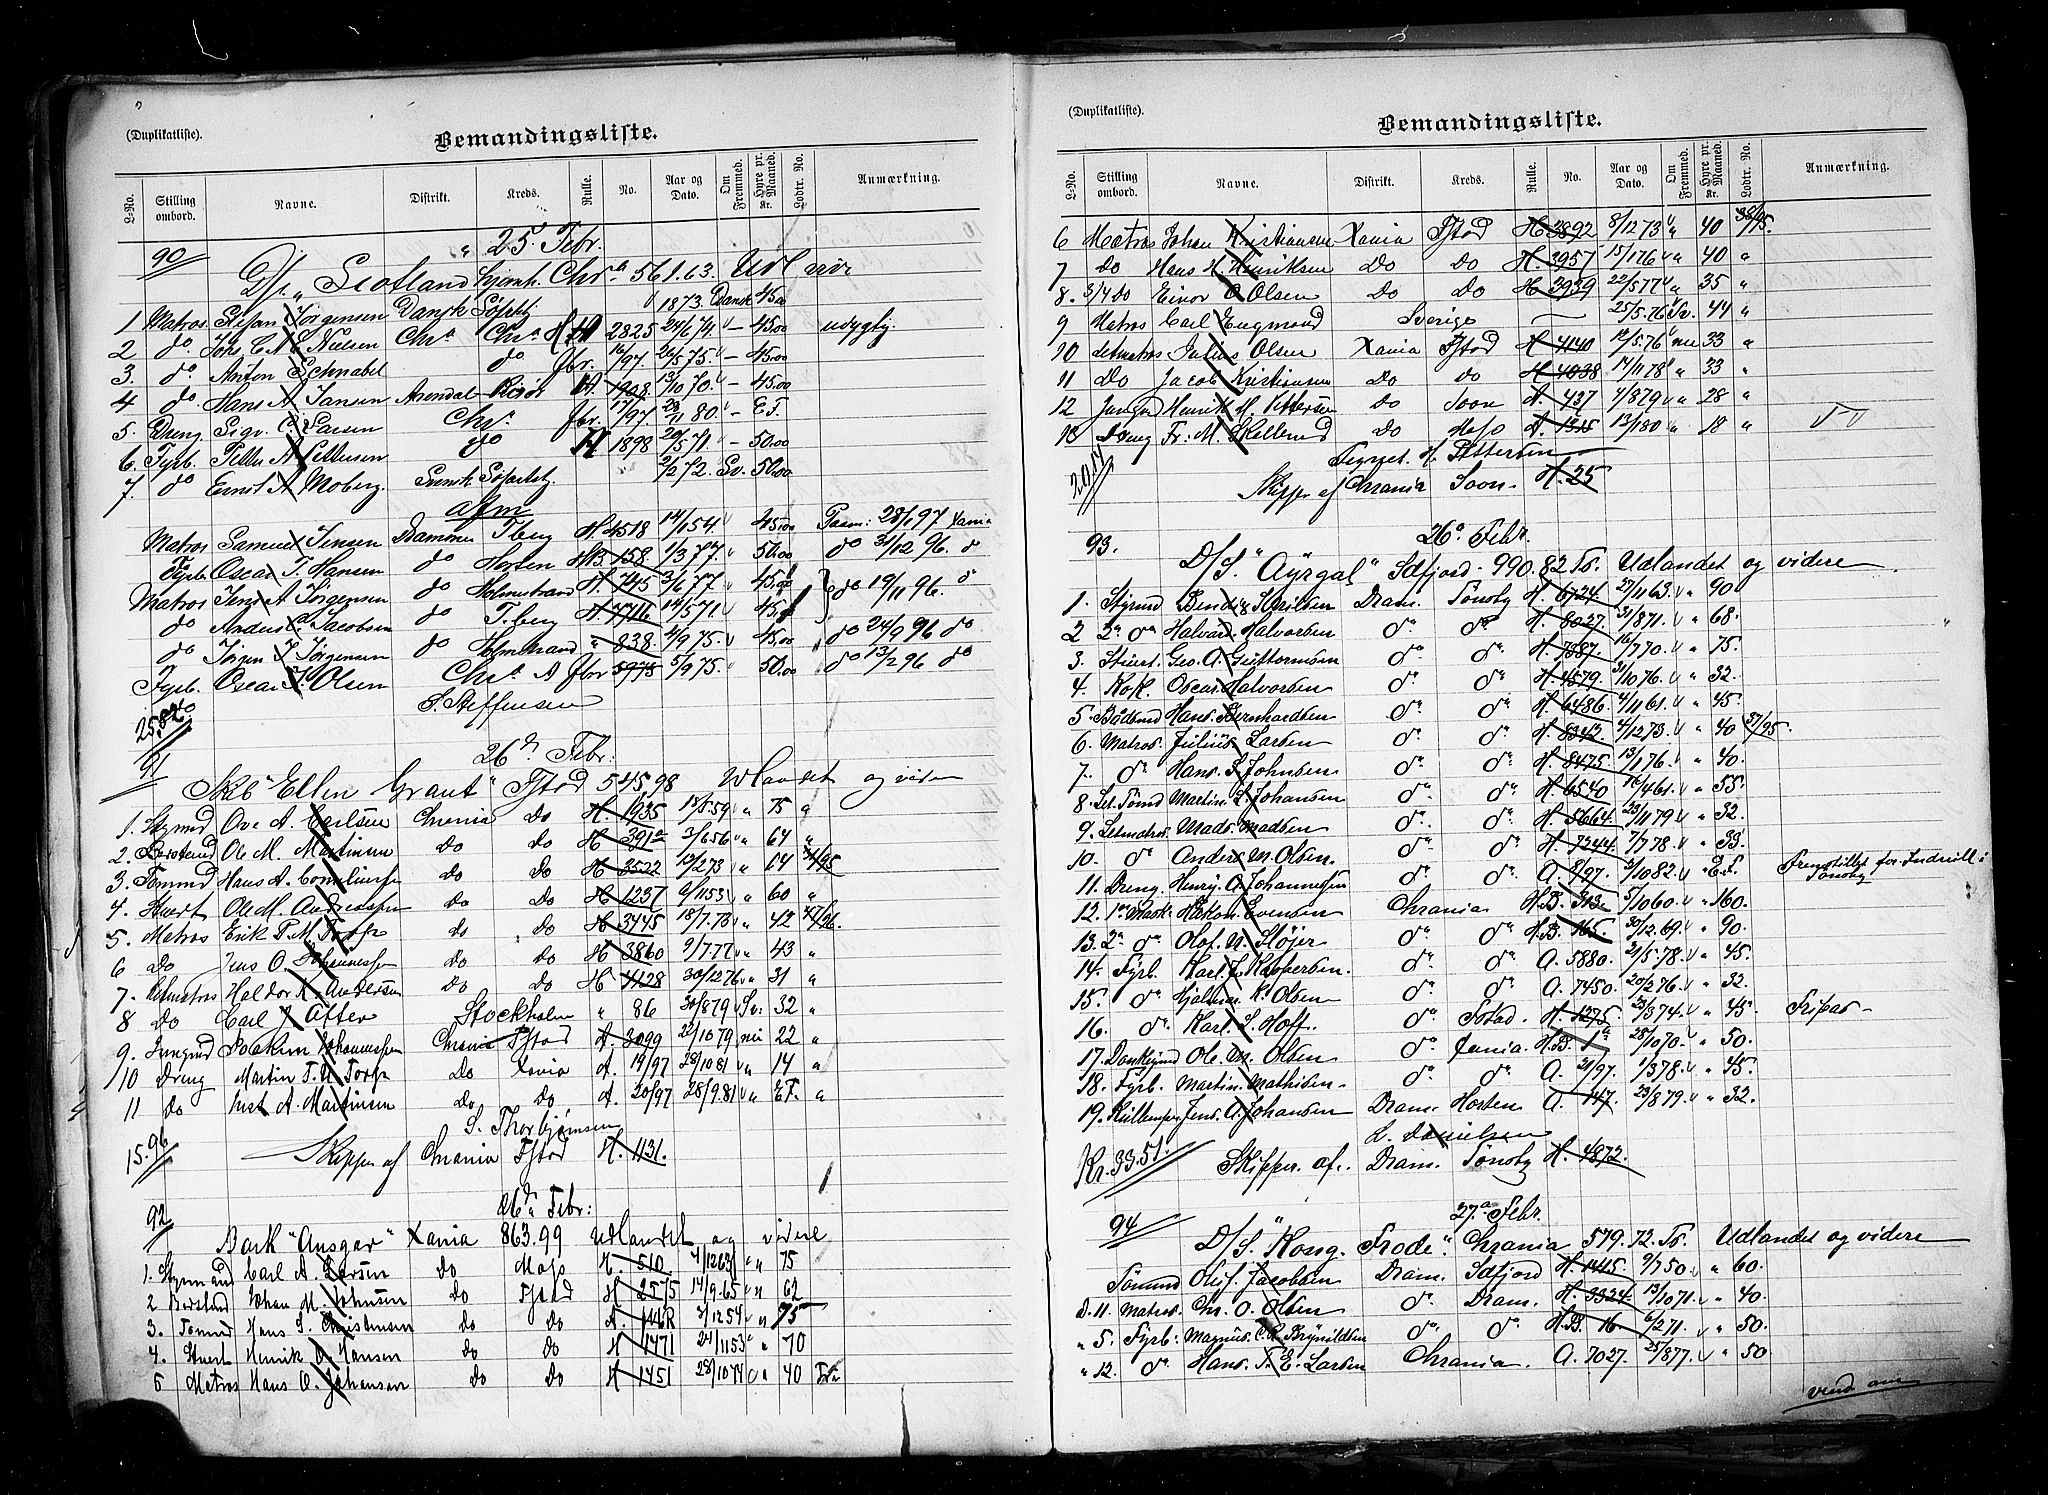 (Duplikatliste).
Bemandingsliste.
L-No. Stilling ombord. Navne. Distrikt. Kreds. Rulle. No. Aar og Dato. Om Fremmed. Hyre pr. Maaned. Kr. Lodtr. No. Anmærkning.
90 " 25 Febr.
D/s. "Scotland" Chra 561.63. Udl
1 Matros Stefan Jørgensen Dansk 1873 Dansk 45.
2 do Johs C. Nielsen Chra Chra H 2825 24/6 74 - 45.00 udygtig.
3. do Anton Schnabel do fbr. 16/97 26/5 75 - 45.00
4 do. Hans A. Jansen Arendal Risør A. 1908 13/10 70 - 45.00
5. Dreng Sigv. C. Larsen Chra. fbr. 17/97 80 - E F.
6. Fyrb. Petter A. Pettersen do H 1898 20/5 71 - 50.00
7. do Ernst A. Moberg. Svensk 2/2 72. Sv. 50.00
Afm
Matros Samuel Jensen Drammen Tberg H. 4518 14/1 54 45.00 28/1 97 Xania
Fyrb Oscar T. Hansen do Horten HB. 158. 1/3 77. 50.00 do 31/12 96. d
Matros Jens A Jørgensen do Holmestrand H. 745 3/6 77 45.00 do 19/11 96. d
do Anders C. Jacobsen do T.berg H. 7716 14/5 71 45.
do Jørgen J Jørgensen do Holmstrand " 838 4/9 75. 45.00 do 24/9 96 do
Fyrb. Oscar J. Olsen Chra A fbr 5978 5/9 75. 50.00 do 13/2 96 do
25.82
S. Steffensen
91 26d Febr.
Skb "Ellen Grant" Fstad 545.98 Udlandet og videre
1. Styrmd Ove A. Carlsen Chrania Do H. 1935 18/5 59 " 75 "
2. Ole M. Martinsen do do H 391a 3/6 56 " 64 "
3. Tømmd Hans A. Do Do H 3522 12/2 73 " 64 34/95
4. Stuert Ole M. Andreassen do Do H 1237 9/11 53 " 60 "
5. Matros Erik T. M. Torp do do H 3445 18/7.78 " 42 47/96
6 Do Jens O. Johannessen Do do H 3860 9/7.77 " 43 "
7. Letmatros Haldor K. Andersen Do Do H 4128 30/12 76 " 31 "
8 Do Carl J After Stockholm " 86 30/8 79 Sv. 32 "
9. Jungmd Joakim Johannessen Chrania Fstad A. 3099 22/10 79 nei 22 "
10 Dreng Martin T. U Torp Do A. 19/97 28/10 81 " 14 "
11 do Just A. Martinsen do Do A. 20/97 28/9.81 " E F. "
S. Thorbjørnsen
15.96 Skipper af Chrania Fstad H. 1131.
92 26d Febr:
Bark "Ansgar" Xania 863.99 Udlandet og videre
1. Styrmand Carl A. Larsen do Moss H. 510 4/12 63 " 75
2 Johan M. Johnsen Do Fstad H 2575 14/9.65 " 62
3. Tømmd Hans S. Christensen Do Do 3/12 54 " 75
4. Stuert Henrik O. Hansen Do Do H 1471 24/11 53 " 70
5 Matros Hans O. Johansen Do Do H 1451 28/10 74 " 40
(Duplikatliste).
Bemandingsliste.
L-No. Stilling ombord. Navne. Distrikt. Kreds. Rulle. No. Aar og Dato. Om Fremmed. Hyre pr. Maaned. Kr. Lodtr. No. Anmærkning.
6 Matros Johan Kristiansen Xania Fstad H 3892 8/12 73 " 40 38/95.
7 do Hans H. Henriksen Do Do H. 3957 15/1 76 " 40 "
8. 3/4 do Einar O Olsen Do Do H 3939 22/5 77 " 35 "
9 Matros Carl Sverige 25/5.76 Sv. 44 "
10 Letmatros Julius Olsen Xania Fstad H 4140 12/5.76 nei 33 "
11 Do Jacob Kristiansen Do do H 4038 17/11 78 " 33 "
12 Jungmd Henrik M. Pettersen do Soon A. 437 4/8 79 " 28 "
13 Dreng Fr. M. do Moss A. 1315 12/1 80 " 18 "
H. Pettersen
Skipper af Chrania Soon. H. 25
93. 26d Febr.
D/S. "Ayrgal" Sdfjord. 990.82 Tr. Udlandet og videre.
1. Styrmd Dram. Tønsbg H. 6724. 27/11 63. " 90
2 2n do Halvard Halvorsen do do H. 8027. 31/8 71. " 68.
3. Stuert. Geo. A. Guttormsen do do H. 7587. 16/7 70. " 75.
4. Kok. Oscar Halvorsen do do H. 4579. 31/10 76. " 32.
5. Bådsmd Hans Bernhardsen do. do. H 6486. 4/11 61. " 45.
6. Matros. Julius Larsen do. do. H. 8342. 4/12 73. " 40 37/95
7. do Hans S. Johnsen do. do. H. 8475. 13/1 76. " 40.
8. Let. Tømmd Martin L. Johansen do. do. H 6540 16/4 61. " 55.
9. Letmatros. Mads Madsen do. do. H. 5664. 23/11 79 " 32.
10. do Anders M. Olsen. do. do. H. 7244. 7/7 78. " 33.
11. Dreng. Henry A. Johannessen do. do. A. 8/97. 3/10 82. " E F. Fremstillet for Indrull i Tønsbg
12. 1ste Mask. Håkon Evensen Chrania. H.B. 313. 5/10 60. " 160.
13. 2n do. Olaf. N. Støjer do. do. H.B. 165. 30/12.69. " 90.
14. Fyrb. Karl. J. Kaspersen. do. do. A. 5880. 21/5.78. " 45.
15. do Hjalmar K. Olsen do. do. A. 7450. 20/2 76. " 32.
16. do. Karl. L. Hoff. do Fstad. H. 1275. 21/3 74. " 45.
17. Donkeymd Ole. M. Olsen do. H.B. 1a 25/10 70. " 50.
18. Fyrb. Martin Mathisen. do. do. A. 21/97. 1/3 78. " 45.
19. Kullemper Jens. A. Johansen Dram. Horten A. 147. 23/8 79. " 32.
L. Danielsen
Kr. 33.51. Skipper. af. Dram. Tønsbg H. 4872.
94 27de Febr.
D/S. "Kong Frode". Chrania 579.72. Tr. Udlandet og videre
Tømmd Oluf. Jacobsen Dram. Sdfjord H. 1415 9/7 50. " 60.
D. 11. Matros. Chr. O. Olsen do. Dram. H. 3324. 13/10 71. " 40.
" 5. Fyrb. Magnus. C. A. Brynildsen do. do. H.B. 16. 6/2 71. " 50.
" 12. do. Hans. T. E. Larsen Chrania. A. 7027. 25/8 77. " 50
vend om